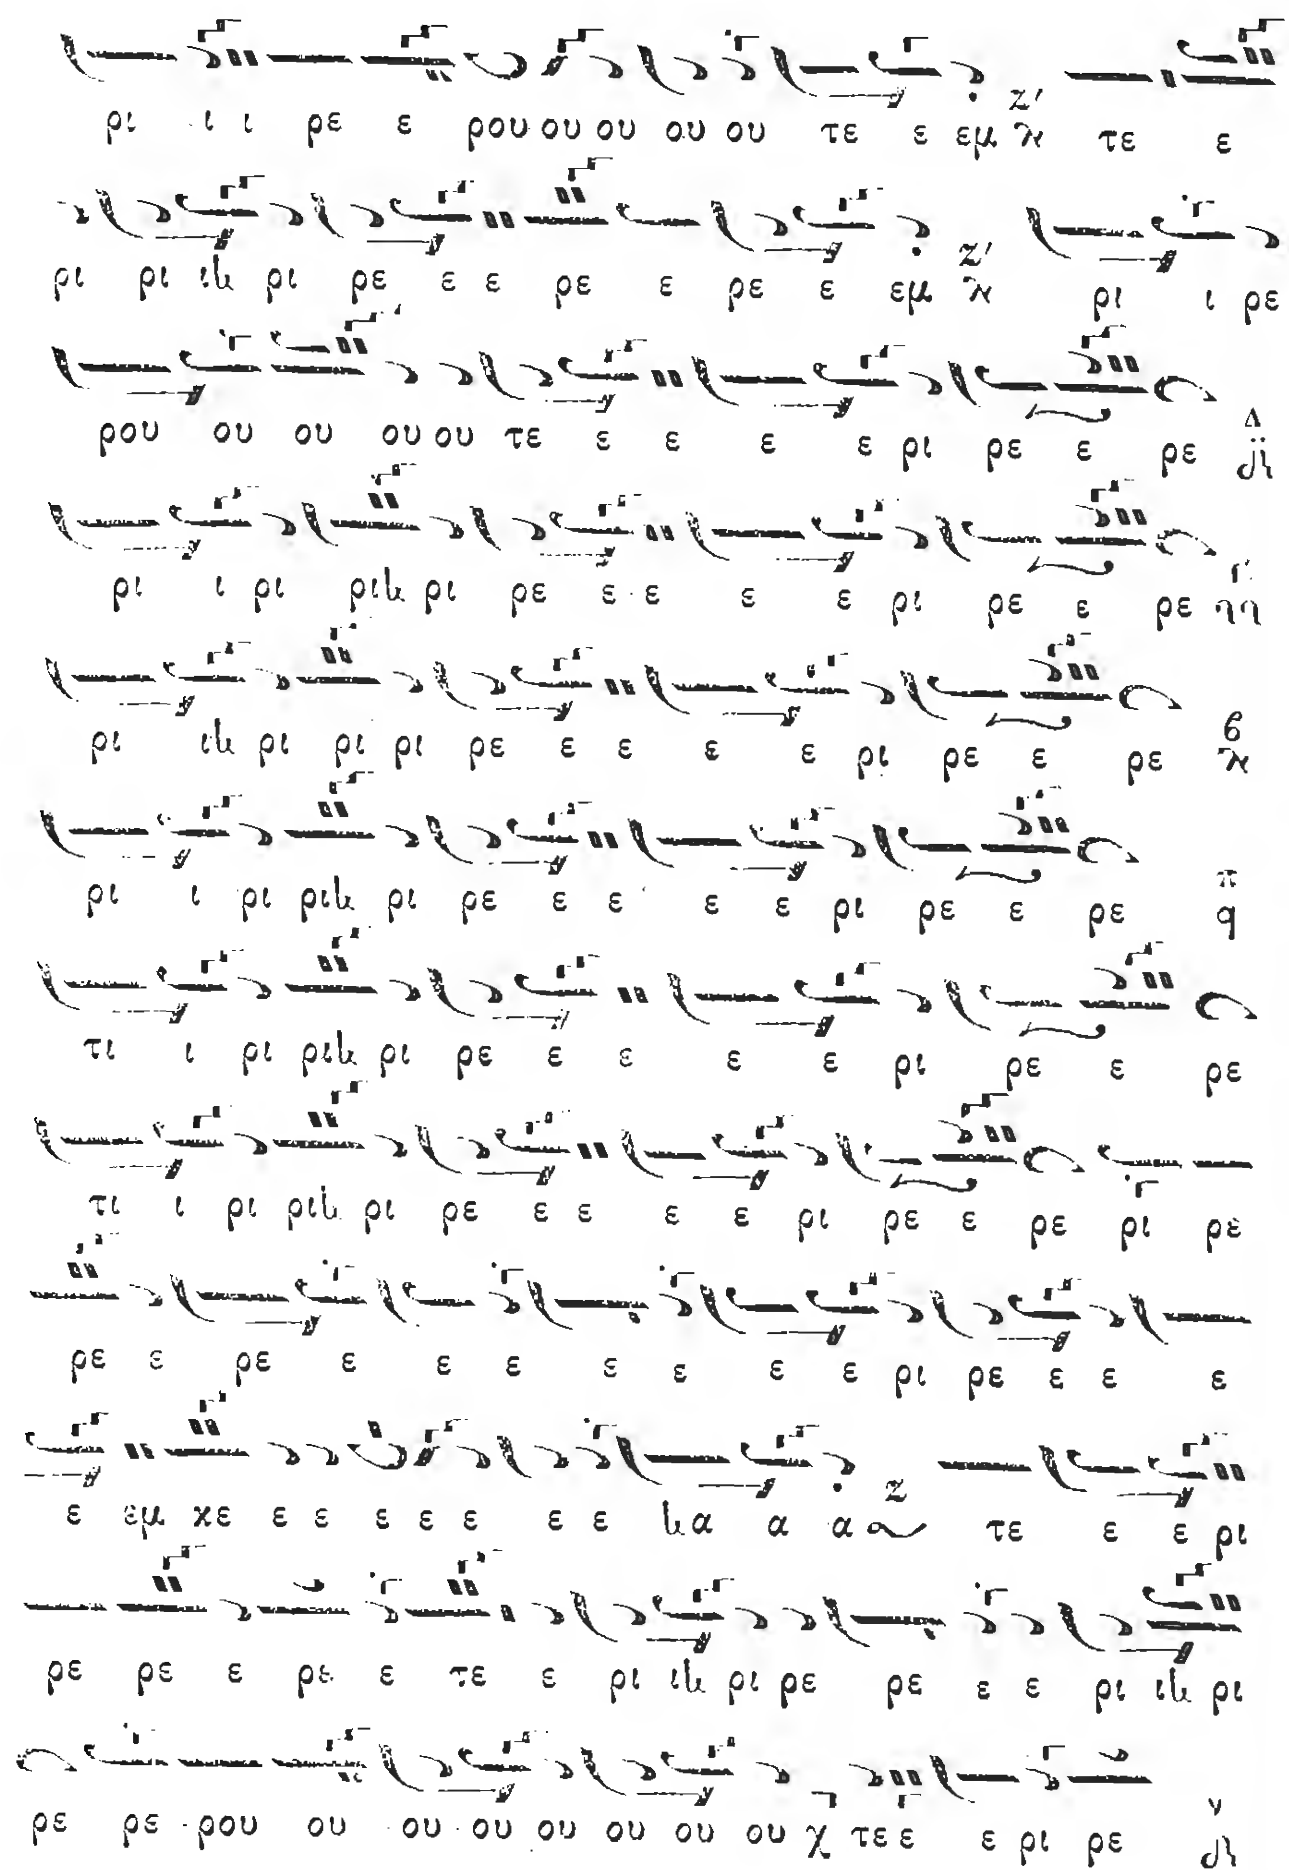 ρι ι ι ρε ε ρου ου ου ου ου τε ε εμ Ζ' τε ε
ρι ρι ιλι ρι ρε ε ε ρε ε ρε ε εμ Ζ' ρι ι ρε
ρου ου ου ου ου τε ε ε ε ε ρι ρε ε ρε Δ
ρι ι ρι ριλι ρι ρε ε ε ε ε ρι ρε ε ρε Γ
ρι ιλι ρι ρι ρι ρε ε ε ε ε ρι ρε ε ρε β
ρι ι ρι ριλι ρι ρε ε ε ε ε ρι ρε ε ρε π q
τι ι ρι ριλι ρι ρε ε ε ε ε ρι ρε ε ρε
τι ι ρι ριλι ρι ρε ε ε ε ε ρι ρε ε ρε ρι ρε
ρε ε ρε ε ε ε ε ε ε ε ρι ρε ε ε ε
ε εμ χε ε ε ε ε ε ε ε λια α α Ζ τε ε ε ρι
ρε ρε ε ρε ε τε ε ρι ιλι ρι ρε ρε ε ε ρι ιλι ρι
ρε ρε ρου ου ου ου ου ου ου ου χ τε ε ε ρι ρε ν